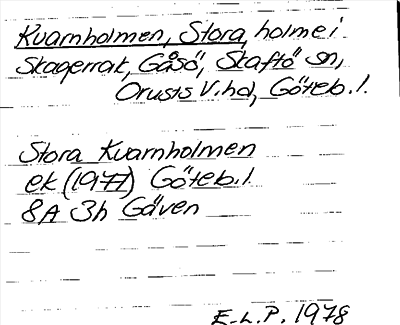 Kvarnholmen, Stora, holme i
Skagerrak, Gåsö, Skaftö sn,
Orusts V. hd, Göteb. l.
Stora Kvarnholmen
ek (1977) Göteb. l
8A 3h Gäven
E.-L. P. 1978